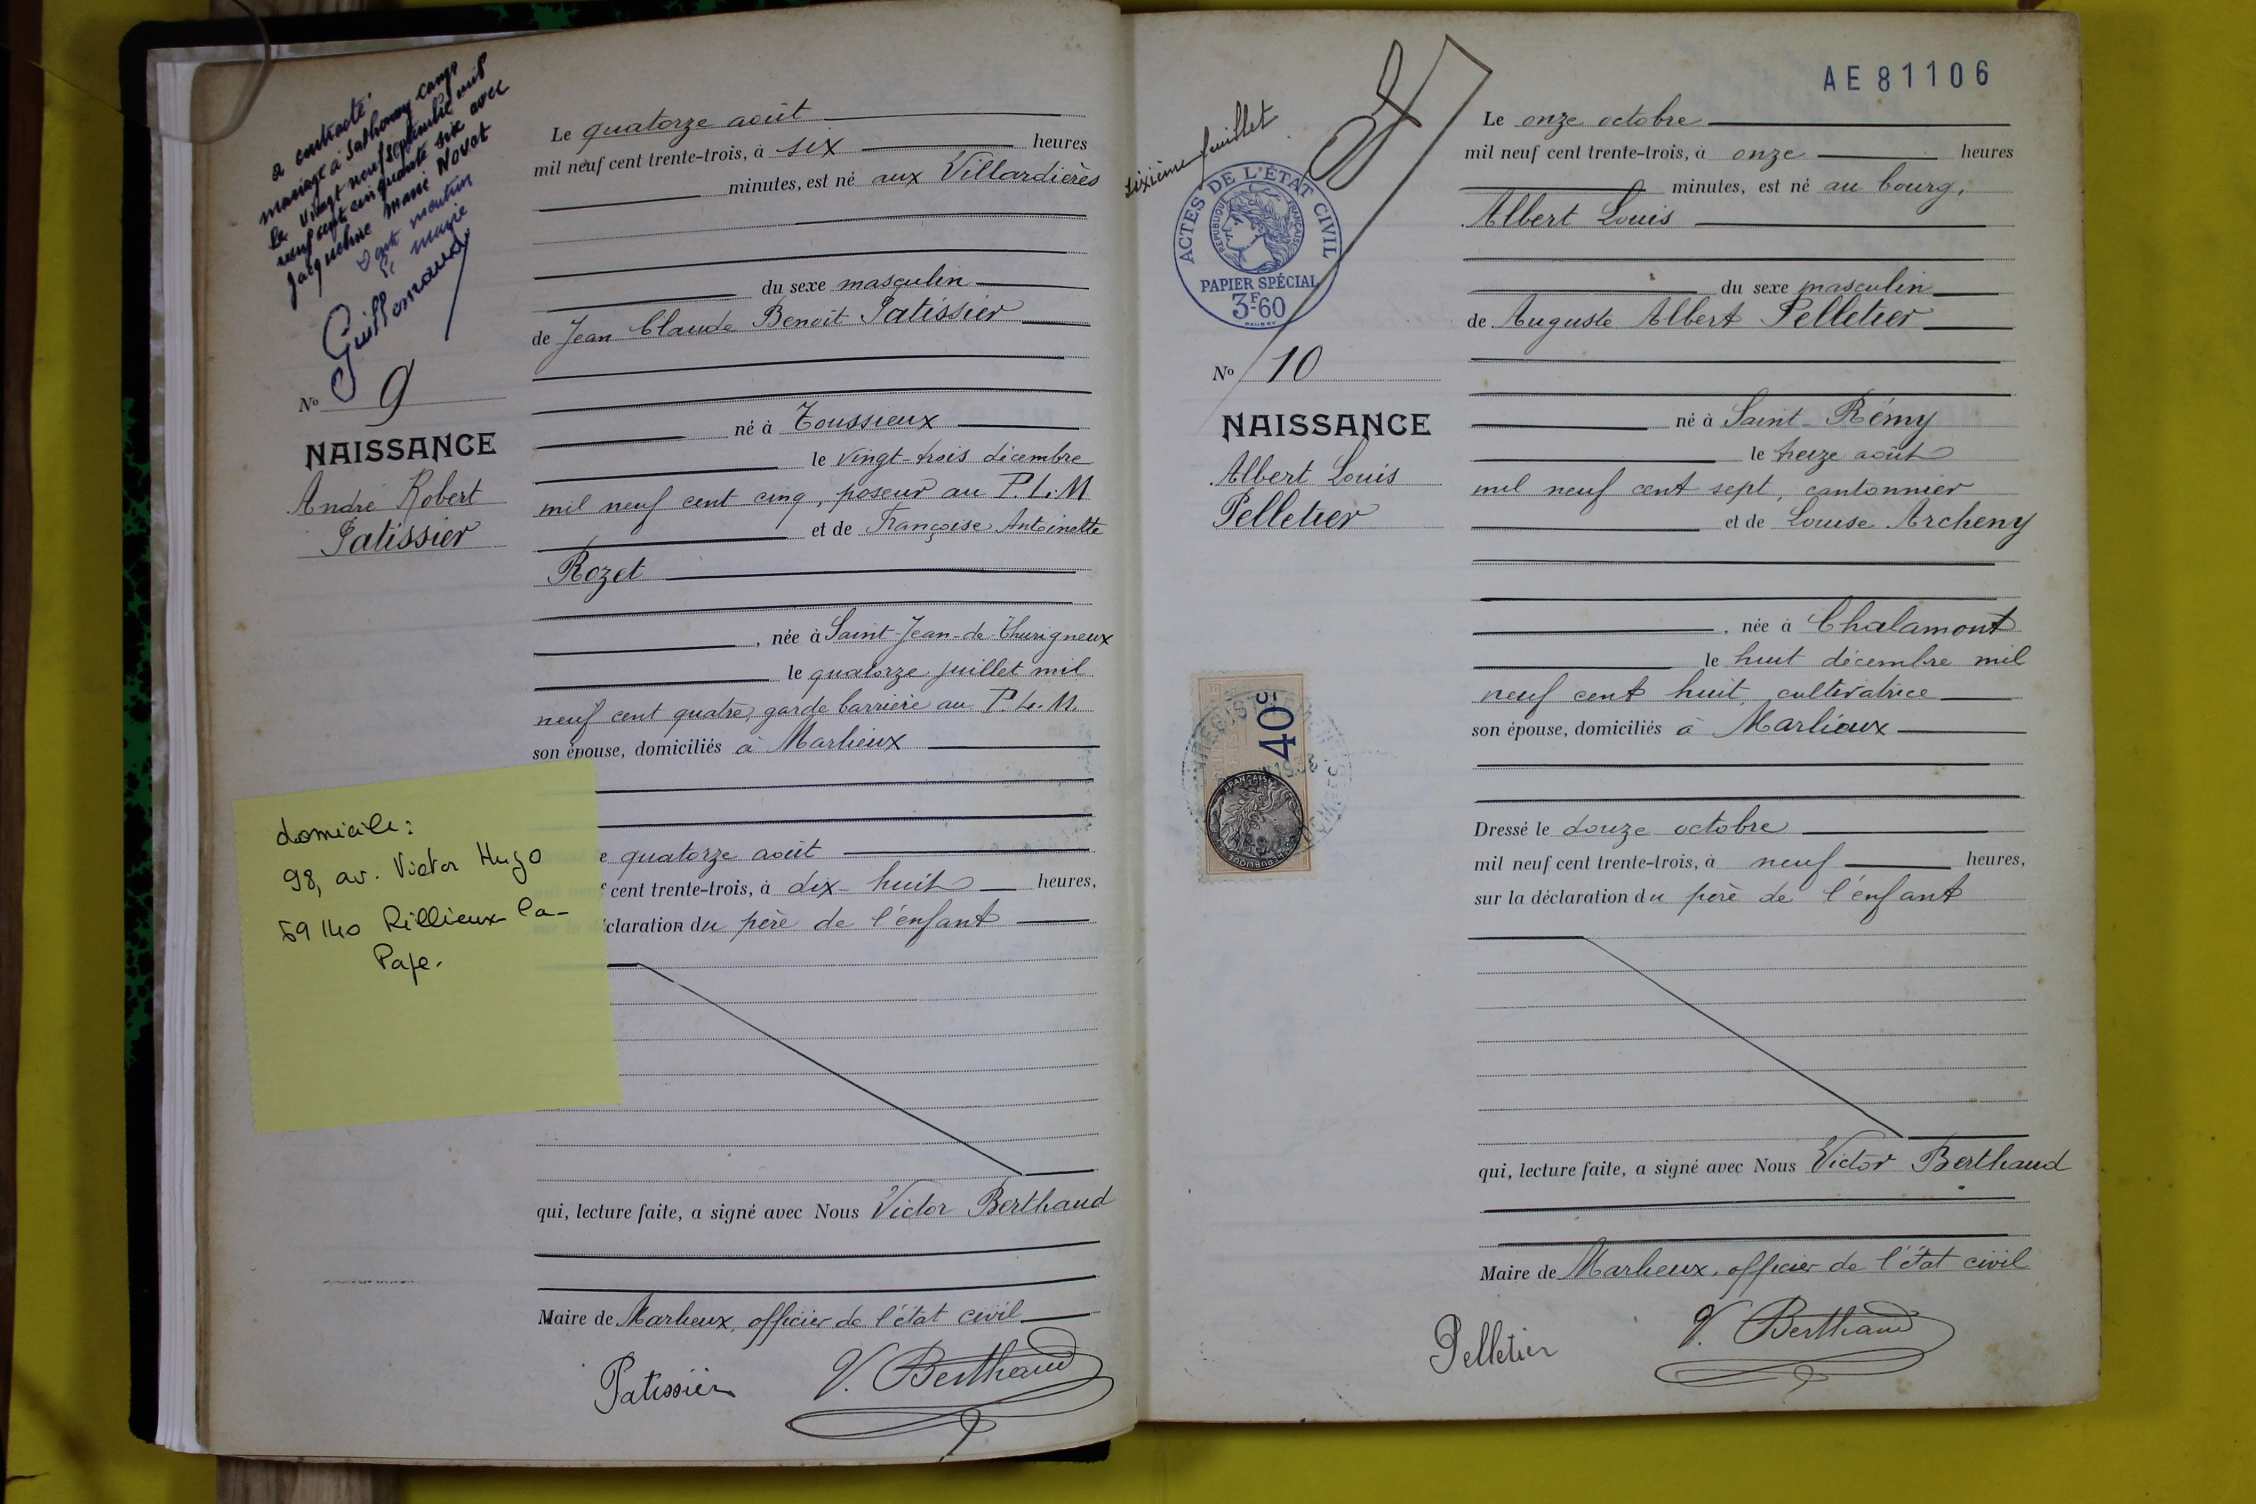 a contracté
mariage à Sathonay Camp
le vingt neuf septembre mil
neuf cent cinquante six avec
Jacqueline Marie Novat
dont mention
le maire
Guillemaud
No 9
NAISSANCE
André Robert
Patissier
Le quatorze août
mil neuf cent trente-trois, à six heures
minutes, est né aux Villardières
du sexe masculin
de Jean Claude Benoît Patissier
né à Toussieux
le vingt-trois décembre
mil neuf cent cinq, poseur au P.L.M
et de Françoise Antoinette
Rozet
, née à Saint-Jean-de-Thurigneux
le quatorze juillet mil
neuf cent quatre, garde barrière au P.L.M.
son épouse, domiciliés à Marlieux
e quatorze août
cent trente-trois, à dix-huit heures,
claration du père de l'enfant
domicile:
98, av. Victor Hugo
69140 Rillieux-la-
Pape.
qui, lecture faite, a signé avec Nous Victor Berthaud
Maire de Marlieux, officier de l'état civil
Patissier V. Berthaud
AE81106
sixième feuillet
ACTES DE L'ÉTAT CIVIL
RÉPUBLIQUE FRANÇAISE
PAPIER SPÉCIAL
3F60
No 10
NAISSANCE
Albert Louis
Pelletier
40
Le onze octobre
mil neuf cent trente-trois, à onze heures
minutes, est né au bourg,
Albert Louis
du sexe masculin
de Auguste Albert Pelletier
né à Saint-Rémy
le treize août
mil neuf cent sept, cantonnier
et de Louise Archeny
, née à Chalamont
le huit décembre mil
neuf cent huit, cultivatrice
son épouse, domiciliés à Marlieux
Dressé le douze octobre
mil neuf cent trente-trois, à neuf heures,
sur la déclaration du père de l'enfant
qui, lecture faite, a signé avec Nous Victor Berthaud
Maire de Marlieux, officier de l'état civil
Pelletier V. Berthaud